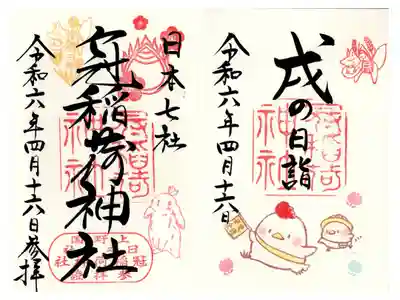 戌の日詣
令和六年四月十六日
日本七社
冠稲荷神社
令和六年四月十六日参拝